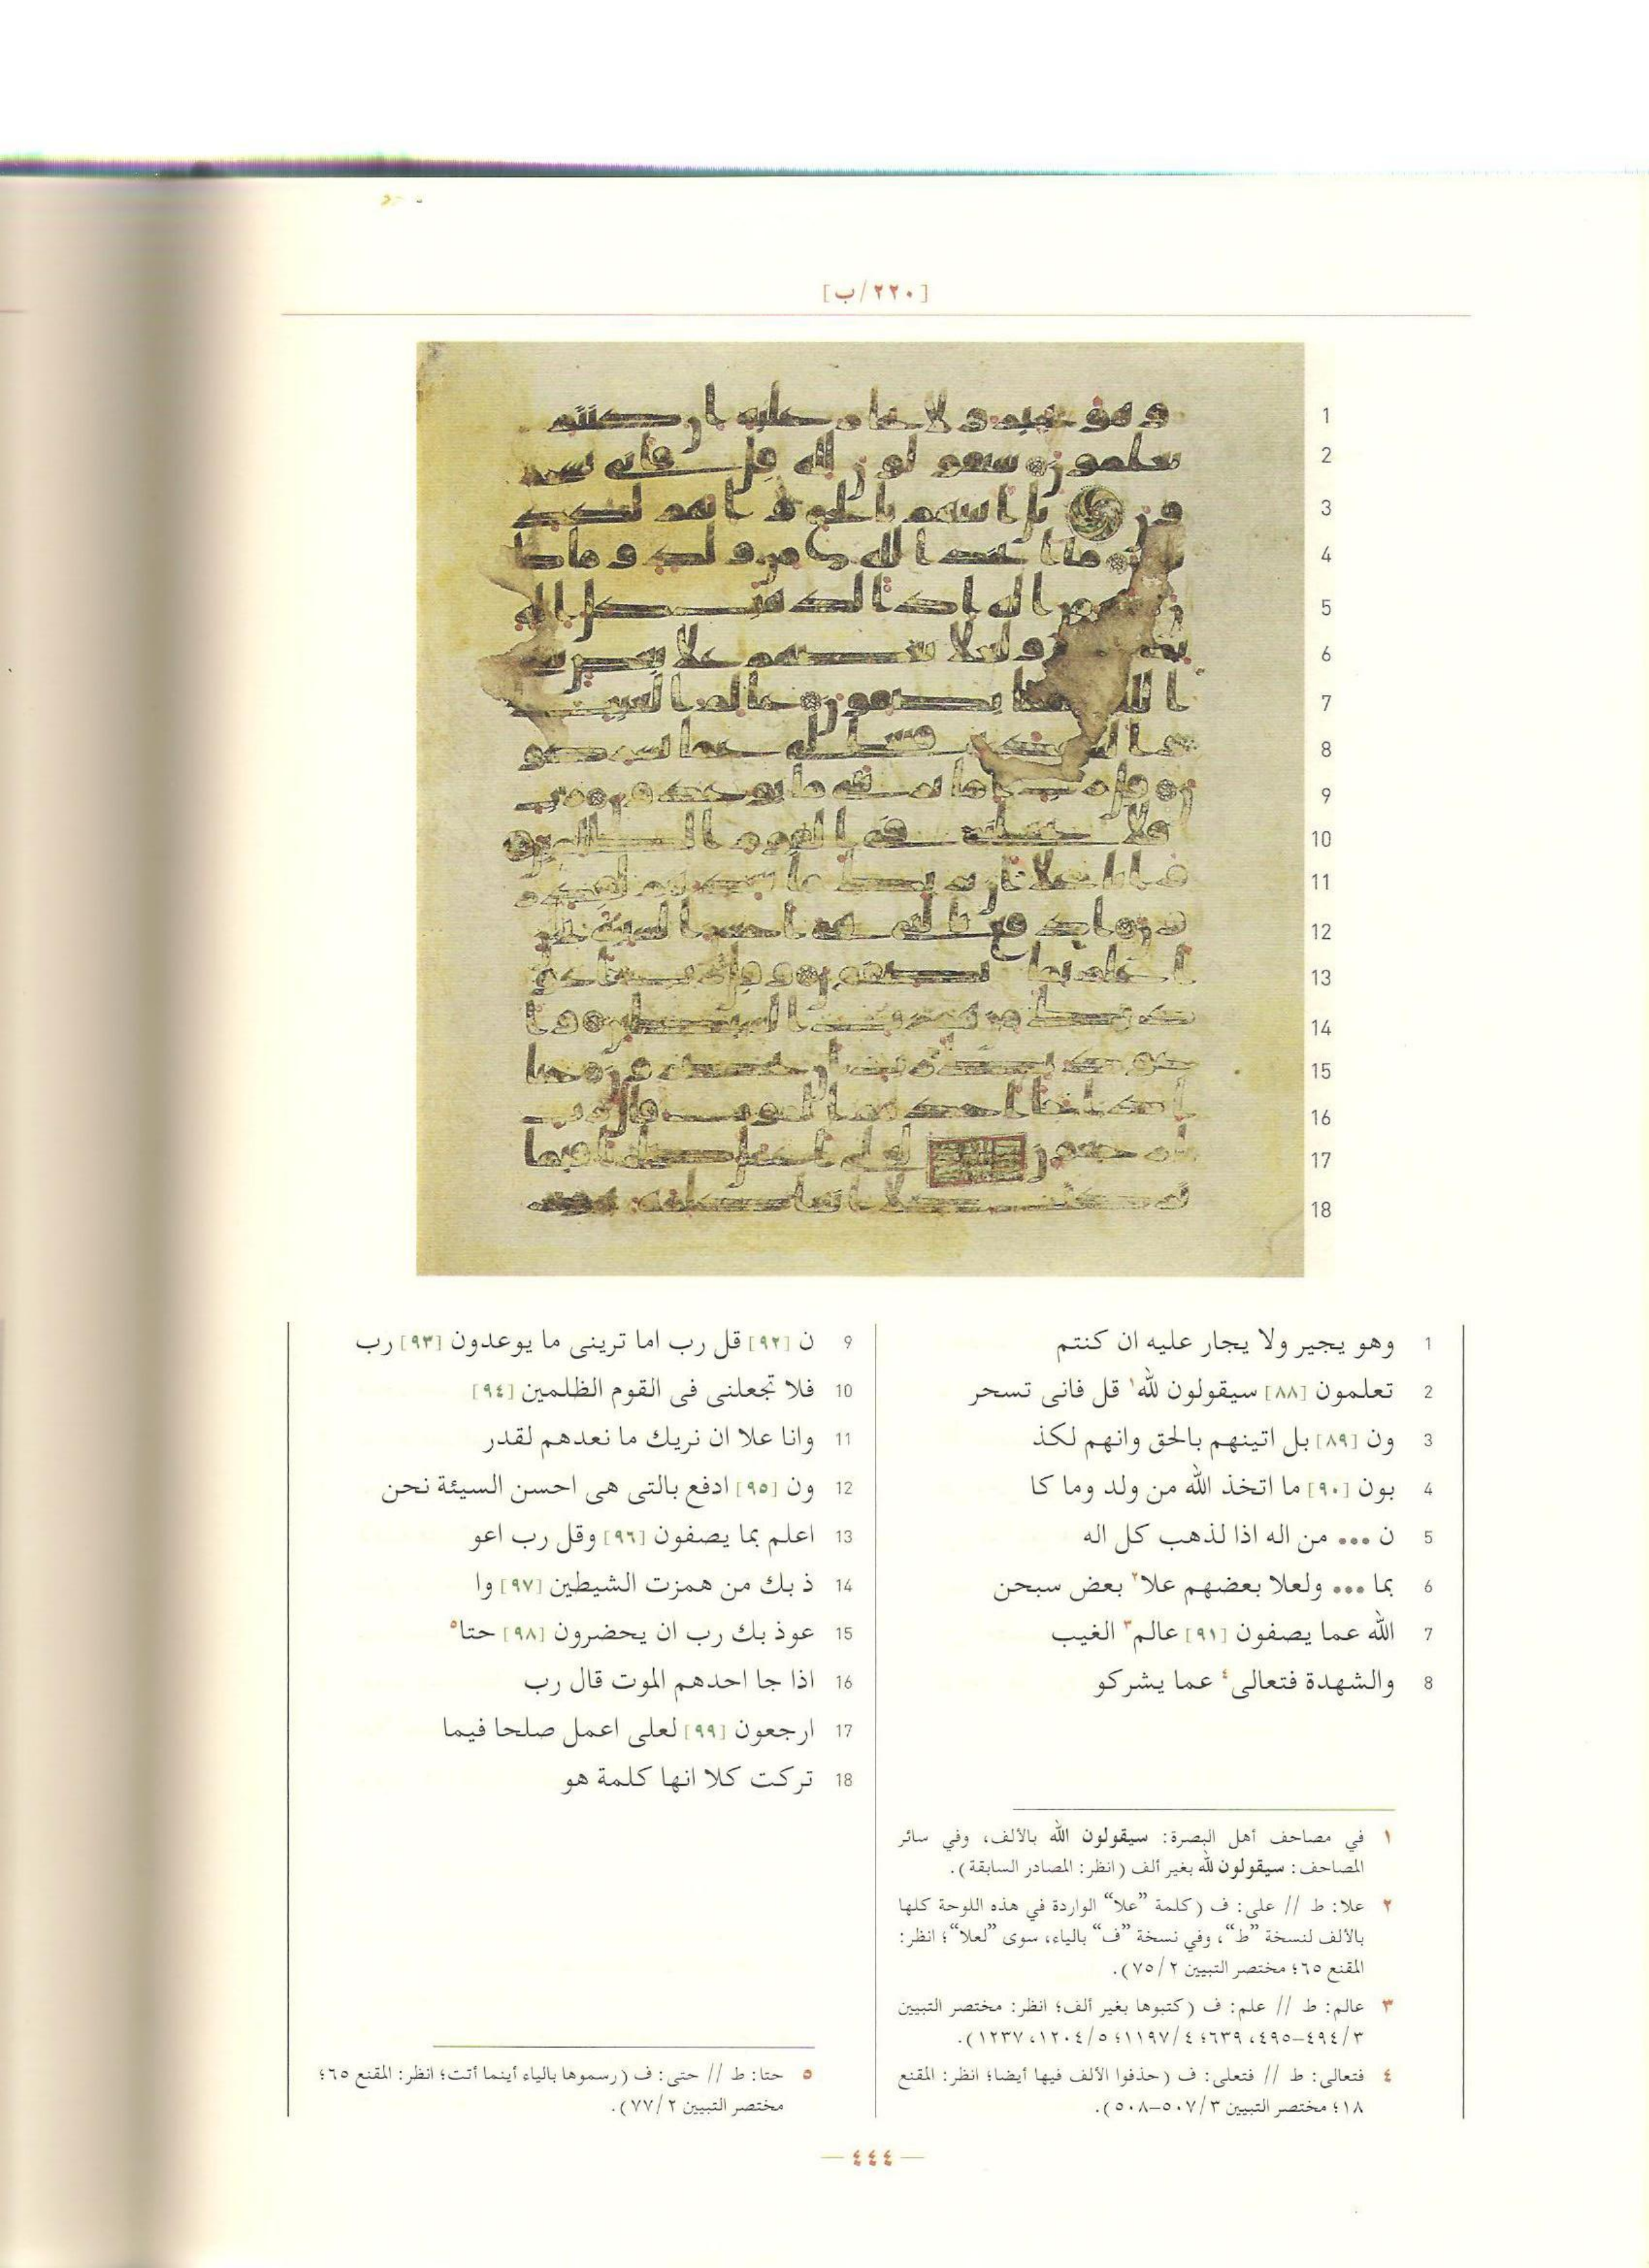 [٢٢٠/ب]
1 وهو يجير ولا يجار عليه ان كنتم
2 تعلمون [٨٨] سيقولون لله١ قل فانى تسحر
3 ون [٨٩] بل اتينهم بالحق وانهم لكذ
4 بون [٩٠] ما اتخذ الله من ولد وما كا
5 ن ••• من اله اذا لذهب كل اله
6 بما ••• ولعلا بعضهم علا٢ بعض سبحن
7 الله عما يصفون [٩١] عالم٣ الغيب
8 والشهدة فتعالى٤ عما يشركو
9 ن [٩٢] قل رب اما ترينى ما يوعدون [٩٣] رب
10 فلا تجعلنى فى القوم الظلمين [٩٤]
11 وانا علا ان نريك ما نعدهم لقدر
12 ون [٩٥] ادفع بالتى هى احسن السيئة نحن
13 اعلم بما يصفون [٩٦] وقل رب اعو
14 ذ بك من همزت الشيطين [٩٧] وا
15 عوذ بك رب ان يحضرون [٩٨] حتا٥
16 اذا جا احدهم الموت قال رب
17 ارجعون [٩٩] لعلى اعمل صلحا فيما
18 تركت كلا انها كلمة هو
١ في مصاحف أهل البصرة: سيقولون الله بالألف، وفي سائر
المصاحف: سيقولون لله بغير ألف (انظر: المصادر السابقة).
٢ علا: ط // على: ف (كلمة ”علا“ الواردة في هذه اللوحة كلها
بالألف لنسخة ”ط“، وفي نسخة ”ف“ بالياء، سوى ”لعلا“؛ انظر:
المقنع ٦٥؛ مختصر التبيين ٧٥/٢).
٣ عالم: ط // علم: ف (كتبوها بغير ألف؛ انظر: مختصر التبيين
٤٩٤/٣–٤٩٥، ٦٣٩؛ ١١٩٧/٤؛ ١٢٠٤/٥، ١٢٣٧).
٤ فتعالى: ط // فتعلى: ف (حذفوا الألف فيها أيضا؛ انظر: المقنع
١٨؛ مختصر التبيين ٥٠٧/٣–٥٠٨).
٥ حتا: ط // حتى: ف (رسموها بالياء أينما أتت؛ انظر: المقنع ٦٥؛
مختصر التبيين ٧٧/٢).
— ٤٤٤ —